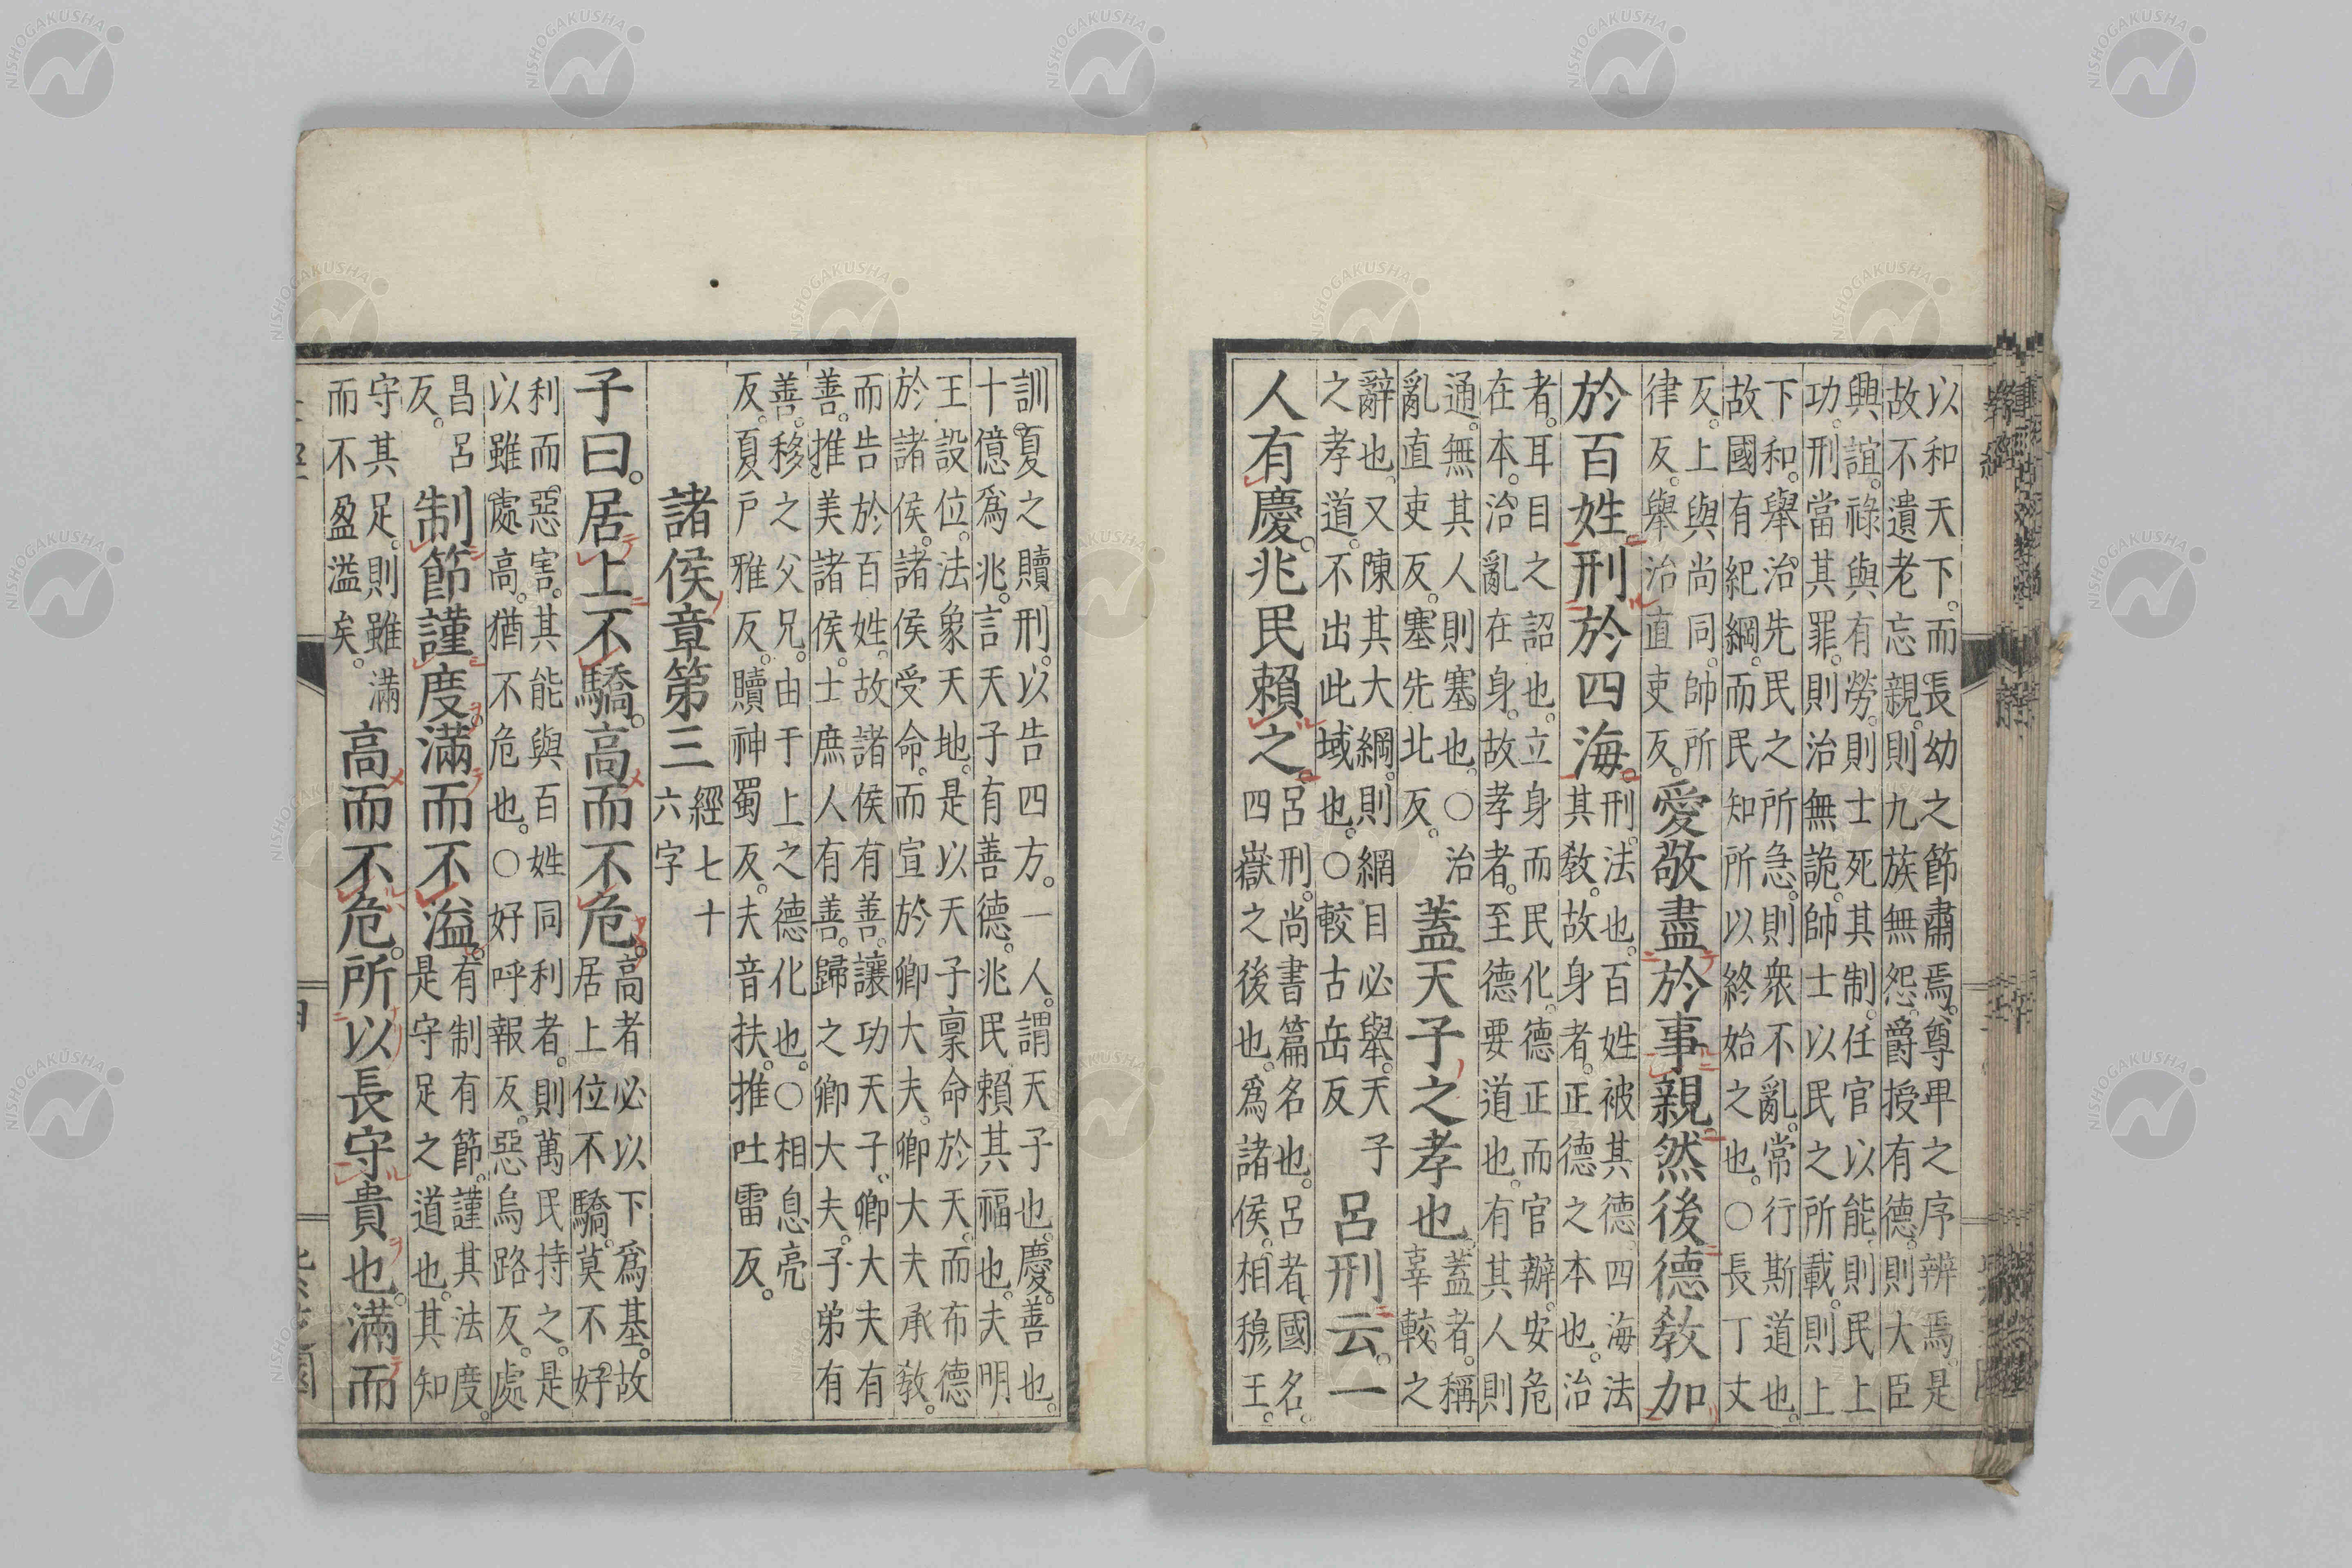 以和天下。而長幼之節肅焉。尊卑之序辨焉。是
故不遺老忘親。則九族無怨。爵授有德。則大臣
興誼。祿與有勞。則士死其制。任官以能。則民上
功。刑當其罪。則治無詭。帥士以民之所載。則上
下和。舉治先民之所急。則衆不亂。常行斯道也。
故國有紀綱。而民知所以終始之也。○長丁丈
反。上與尚同。帥所
律反。舉治直吏反。
愛敬盡於事親然後德教加
於百姓。刑於四海。
刑。法也。百姓被其德。四海法
其教。故身者。正德之本也。治
者。耳目之詔也。立身而民化。德正而官辦。安危
在本。治亂在身。故孝者。至德要道也。有其人則
通。無其人則塞也。○治
亂直吏反。塞先北反。
蓋天子之孝也。
蓋者。稱
辜較之
辭也。又陳其大綱。則網目必舉。天子
之孝道。不出此域也。○較古岳反
呂刑云。一
人有慶。兆民賴之。
呂刑。尚書篇名也。呂者。國名。
四嶽之後也。爲諸侯。相穆王。
訓夏之贖刑。以告四方。一人。謂天子也。慶。善也。
十億爲兆。言天子有善德。兆民賴其福也。夫明
王設位。法象天地。是以天子稟命於天。而布德
於諸侯。諸侯受命。而宣於卿大夫。卿大夫承教。
而告於百姓。故諸侯有善。讓功天子。卿大夫有
善。推美諸侯。士庶人有善。歸之卿大夫。子弟有
善。移之父兄。由于上之德化也。○相息亮
反。夏戶雅反。贖神蜀反。夫音扶。推吐雷反。
諸侯章第三
經七十
六字
子曰。居上不驕。高而不危。
高者必以下爲基。故
居上位不驕。莫不好
利而惡害。其能與百姓同利者。則萬民持之。是
以雖處高。猶不危也。○好呼報反。惡烏路反。處
昌呂
反。
制節謹度滿而不溢。
有制有節。謹其法度。
是守足之道也。其知
守其足。則雖滿
而不盈溢矣。
高而不危。所以長守貴也。滿而
NISHOGAKUSHA